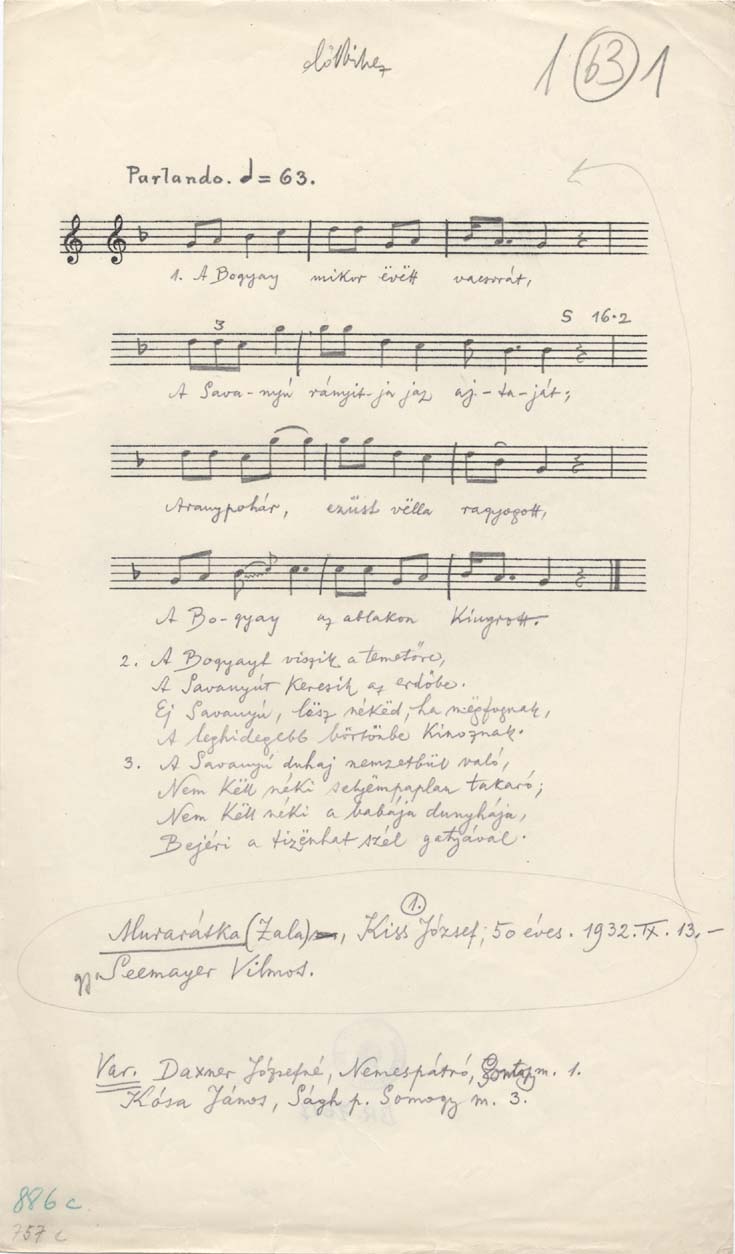 1 63 1
Parlando. = 63.
1. A Bogyay mikor ëvëtt vacsorát,
S 16·2
3
A Sava-nyú rányit-ja jaz aj-ta-ját;
Aranypohár, ezüst vëlla ragyogott,
A Bo-gyay az ablakon kiugrott.
2. A Bogyayt viszik a temetőre,
A Savanyút keresik az erdőbe.
Ej Savanyú, lësz nékëd, ha mëgfognak,
A leghidegebb börtönbe kinoznak.
3. A Savanyú duhaj nemzetbül való,
Nem këll néki selyëmpaplan takaró;
Nem këll néki a babája dunyhája,
Bejéri a tizënhat szél gatyával.
1.
Murarátka (Zala), Kiss József, 50 éves. 1932. IX. 13.-
gy. Seemayer Vilmos.
Var. Daxner Józsefné, Nemespátró, m. 1.
Kósa János, Ságh p. Somogy m. 3.
886 c
757 c